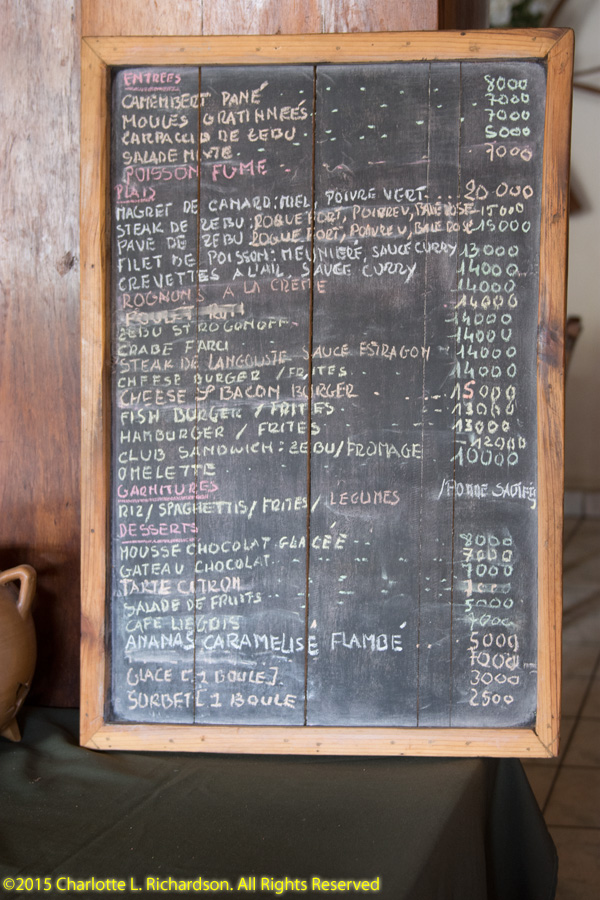 ENTREES
CAMEMBERT PANÉ 8000
MOULES GRATINNÉES 7000
CARPACCIO DE ZEBU 7000
SALADE MIXTE 5000
POISSON FUMÉ 7000
PLATS
MAGRET DE CANARD: MIEL, POIVRE VERT 20 000
STEAK DE ZEBU: ROQUEFORT, POIVRE V, BAIE ROSE 15000
PAVE DE ZEBU ROQUEFORT, POIVRE V, BAIE ROSE 15000
FILET DE POISSON: MEUNIERE, SAUCE CURRY 13000
CREVETTES A L'AIL, SAUCE CURRY 14000
ROGNONS A LA CREME 14000
POULET ROTI 14000
ZEBU STROGONOFF 14000
CRABE FARCI 14000
STEAK DE LANGOUSTE SAUCE ESTRAGON 14000
CHEESE BURGER / FRITES 14000
CHEESE & BACON BURGER 15000
FISH BURGER / FRITES 13000
HAMBURGER / FRITES 13000
CLUB SANDWICH: ZEBU/FROMAGE 12000
OMELETTE 10000
GARNITURES
RIZ/ SPAGHETTIS/ FRITES/ LEGUMES /POMME SAUTÉES
DESSERTS
MOUSSE CHOCOLAT GLACÉE 8000
GATEAU CHOCOLAT 7000
TARTE CITRON 7000
SALADE DE FRUITS 5000
CAFE LIEGOIS 7000
ANANAS CARAMELISÉ FLAMBÉ 5000
7000
GLACE [1 BOULE] 3000
SORBET [1 BOULE 2500
©2015 Charlotte L. Richardson. All Rights Reserved